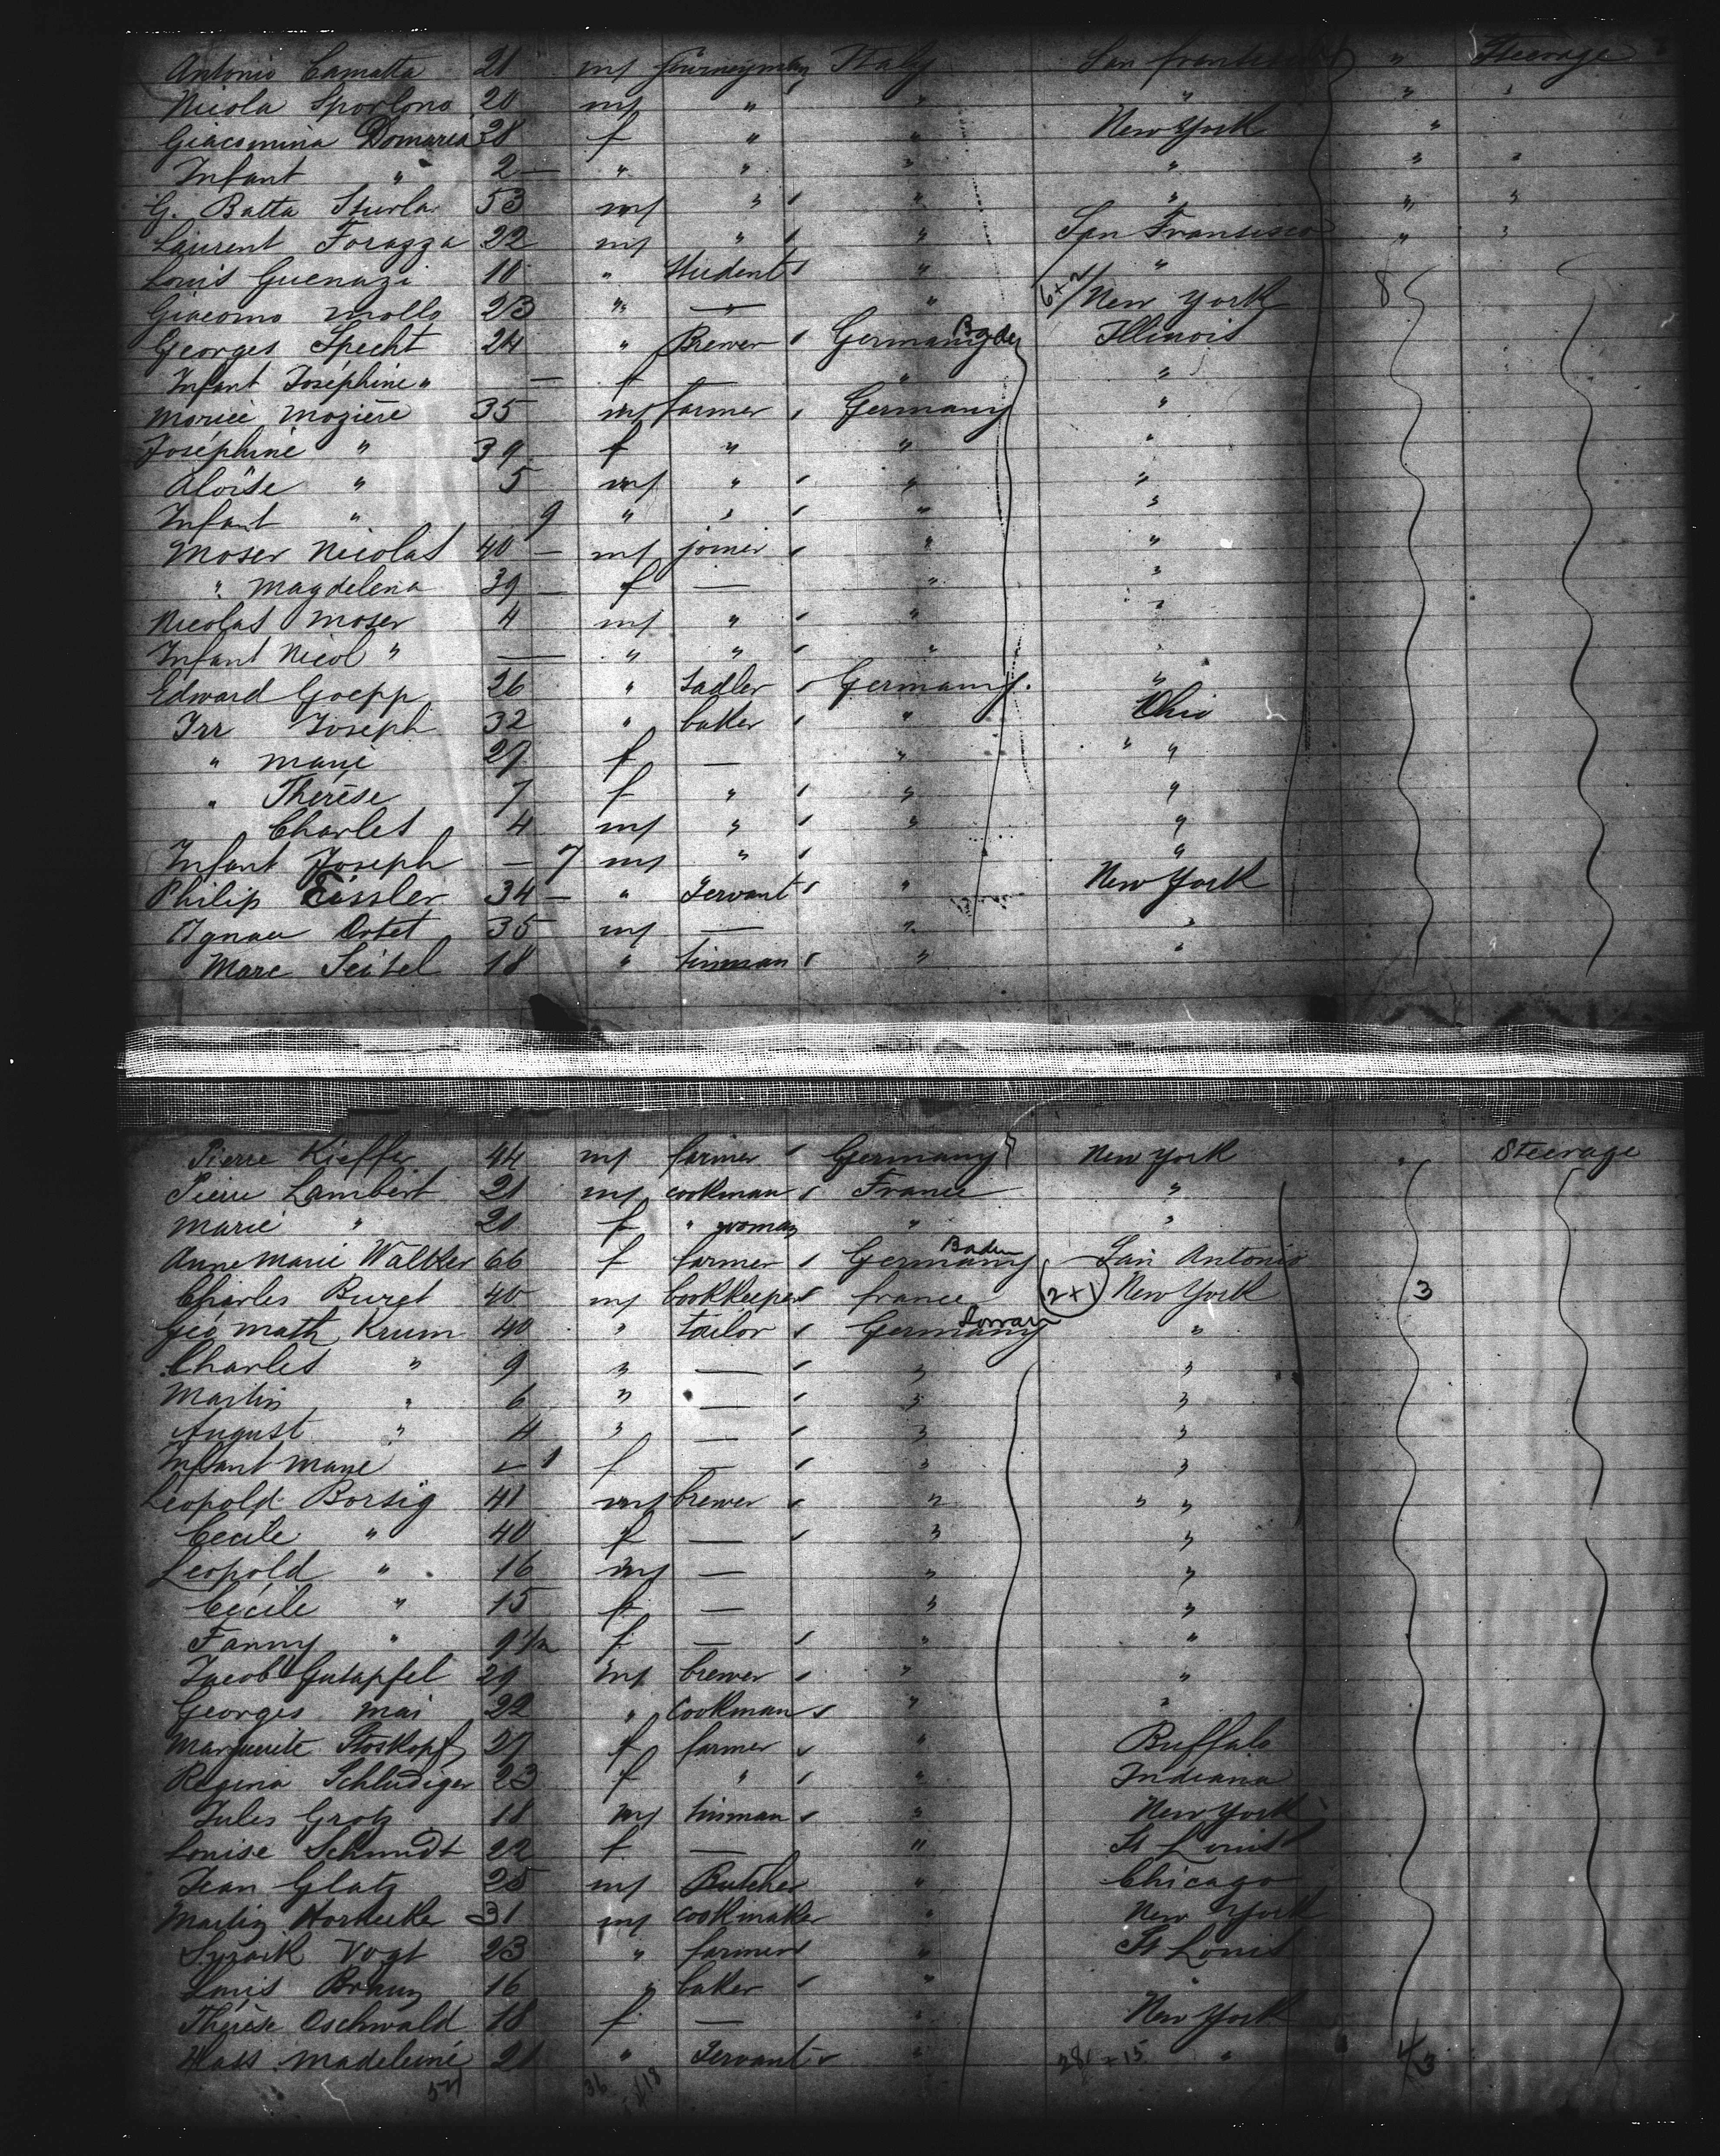 Antonio Camatta 21 m journeyman Italy San francisco " Steerage
Nicola 20 m " " " " "
Giacomina Domarea 28 f " " New York "
Infant " 2 — " " " " " "
G. Batta Sturla 53 m " " " " "
Laurent Foragga 22 m " " San Fransisco " "
Louis Guenazi 10 " Student " "
Giacomo Mollo 23 " — " 6+2/ New York 8
Georges Specht 24 " Brewer Germany Baden Illinois
Infant Joséphine " — f — " "
Morice Mozière 35 m farmer Germany "
Joséphine " 39 f " " "
Aloïse " 5 m " " "
Infant " 9 " " " "
Moser Nicolas 40 — m joiner " "
" Magdelena 39 — f — " "
Nicolas Moser 4 m " " "
Infant Nicol " — " " " "
Edward Goepp 26 " Sadler Germany. "
Irr Joseph 32 " baker " Ohio
" Marie 29 f — " " "
" Therèse 7 f " " "
Charles 4 m " " "
Infant Joseph — 7 m " "
Philip Eissler 34 — " Servant " New York
Ignace 35 m — " "
Marc Seitel 18 " tinman " "
Pierre Kieffer 44 m farmer Germany New York " Steerage
Pierre Lambert 21 m cookman France "
Marie " 20 f " woman " "
Anne Marie Walker 66 f farmer Germany Baden San Antonio
Charles Buret 40 m bookkeeper france (2+1) New York 3
Geo Math Krum 40 " tailor Germany Lorrain "
Charles " 9 " — " "
Martin " 6 " — " "
August " 4 " — " "
Infant Marie — 1 f — " "
Leopold Borsig 41 m brewer " " "
Cecile " 40 f — " "
Leopold " 16 m — " "
Cécile " 15 f — " "
Fanny " 9 1/2 f — " "
Jacob Gutapfel 29 m brewer " "
Georges Mai 22 " cookman " "
Marguerite Stoskopf 27 f farmer " Buffalo
Regina Schludiger 23 f " " Indiana
Jules Grotz 18 m tinman " New York
Louise Schmidt 22 f — " St Louis
Jean Glatz 25 m Butcher " Chicago
Martin Hornecker 31 m cookmaker " New York
Vogt 23 " farmer " St Louis
Louis Braun 16 " baker " "
Thérèse Oschwald 18 f — " New York
Hass Madeleine 21 " Servant " 28 + 15 " 43